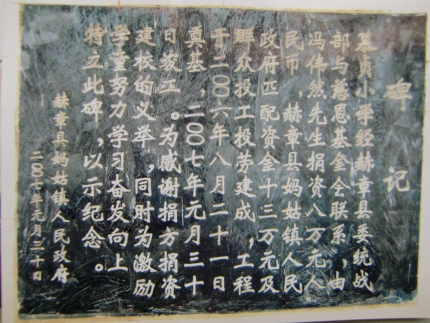 碑记
小学经赫章县委统战
部与慈恩基金会联系，由
冯伟然先生捐资八万元人
民币，赫章县妈姑镇人民
政府匹配资金十三万元及
群众投工投劳建成，工程
于二00六年八月二十一日
奠基，二00七年元月三十
日竣工。为感谢捐方捐资
建校的义举，同时为激励
学童努力学习奋发向上
特立此碑，以示纪念。
赫章县妈姑镇人民政府
二00七年元月三十日